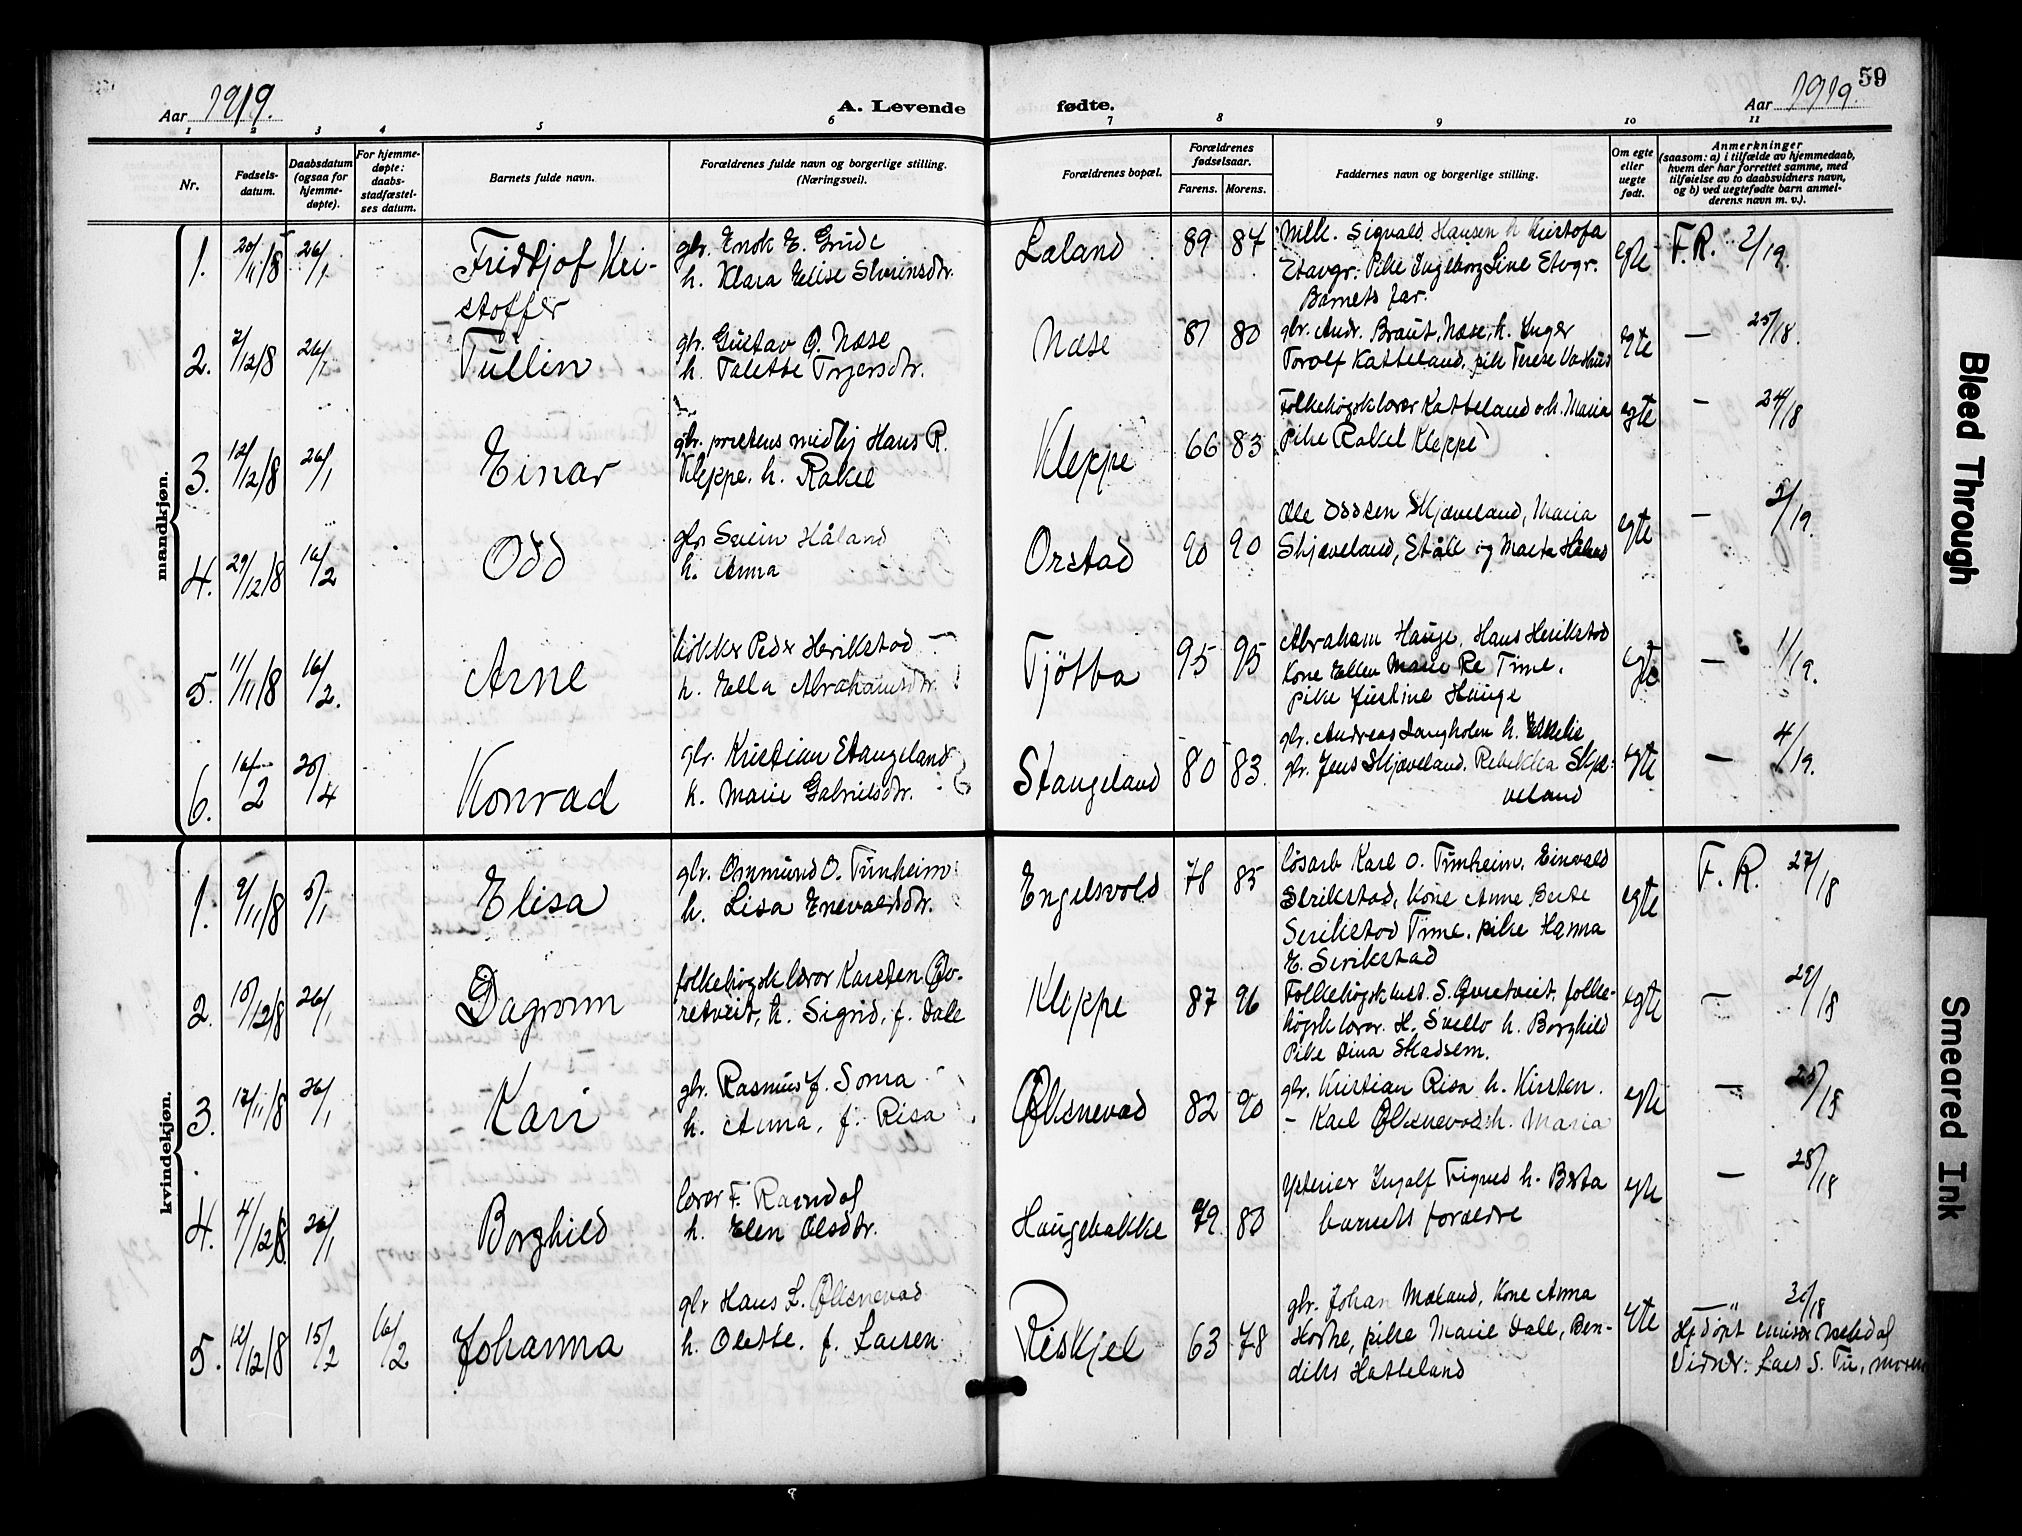 59
Aar 1919.
A. Levende fødte.
Aar 1919.
1 2 3 4 5 6 7 8 9 10 11
Nr.
Fødsels-
datum.
Daabsdatum
(ogsaa for
hjemme-
døpte).
For hjemme-
døpte:
daabs-
stadfæstel-
ses datum.
Barnets fulde navn.
Forældrenes fulde navn og borgerlige stilling.
(Næringsvei).
Forældrenes bopæl.
Forældrenes
fødselsaar.
Farens. Morens.
Faddernes navn og borgerlige stilling.
Om egte
eller
uegte
født.
Anmerkninger
(saasom: a) i tilfælde av hjemmedaab,
hvem der har forrettet samme, med
tilføielse av to daabsvidners navn,
og b) ved uegtefødte barn anmel-
derens navn m. v.).
mandkjøn.
1. 20/11/8 26/1 Fridtjof Kri-
stoffer
gbr. Enok E. Grude
h. Klara Elise
Laland 89 87
Sigvald Hansen h Kristofa
Pike Ingeborg Line
Barnets far.
egte F.R. 2/19.
2. 2/12/8 26/1 Tullin
gbr. Gustav O. Næse
h. Talette
Næse 81 80
gbr. Andr. Braut, Næse, h. Inger
Torolf Katteland, pike Terese
egte — 25/18.
3. 12/12/8 26/1 Einar
gbr. prestens medhj Hans R.
Kleppe. h. Rakel
Kleppe 66 83
Folkehögsklærer Katteland o h. Maria
pike Rakel Kleppe
egte — 24/18
4. 29/12/8 16/2 Odd
gbr Svein Håland
h. Anna
Orstad 90 90
Ole Oddsen Skjæveland, Maria
Skjæveland, Ståle og Marta Håland
egte — 5/19.
5. 11/11/8 16/2. Arne
bökker Peder Herikstad
h. Ella Abrahamsdtr.
Tjötta 95 95
Abraham Hauge, Hans Herikstad
Kone Ellen Marie Re Time.
pike Justine Hauge
egte — 1/19.
6. 16/2 20/4 Konrad
gbr. Kristian Stangeland
h. Marie Gabrielsdtr.
Stangeland 80 83.
gbr. Andreas Langholen h.
gbr. Jens Skjæveland. Rebekka Skjæ-
veland
egte — 4/19.
kvindekjøn.
1. 9/11/8 5/1 Elisa
gbr. Ommund O. Tunheim
h. Lisa Enevaldsdtr.
Engelsvold 78 85
løsarb Karl O. Tunheim. Einvald
Serikstad, Kone Anne Berte
Serikstad Time. pike Hanna
E. Serikstad
egte F. R. 27/18
2. 15/12/8 26/1 Dagrunn
folkehögsk lærer Karsten Qv-
retveit, h. Sigrid, f. Dale
Kleppe 87 96
Folkehögsk best. S. Qvretveit, folke-
högsk lærer. H. h. Borghild
Pike Dina Skadsem.
egte — 29/18
3. 17/11/8 26/1 Kari
gbr. Rasmus J. Soma
h. Anna, f. Risa
Øksnevad 82 90
gbr. Kristian Risa h. Kirsten.
— Karl Øksnevad h. Maria
egte — 25/18
4. 4/12/8 26/1 Borghild
lærer F. Ramndal
h. Elen Olsdtr.
Haugebakke 79. 80
Ingolf Figved h. Berta
barnets foreldre
egte — 28/18
5. 12/12/8 15/2 16/2 Johanna
gbr Hans L. Øksnevad
h. Olette. f. Larsen
Reskjel 63 78
gbr. Johan Mæland, Kone Anna
Horne, pike Marie Dale, Ben-
dikt Hatteland
egte — 30/18
Hjdöpt
Vidner: Lars S. Tu, moren
Bleed Through
Smeared Ink